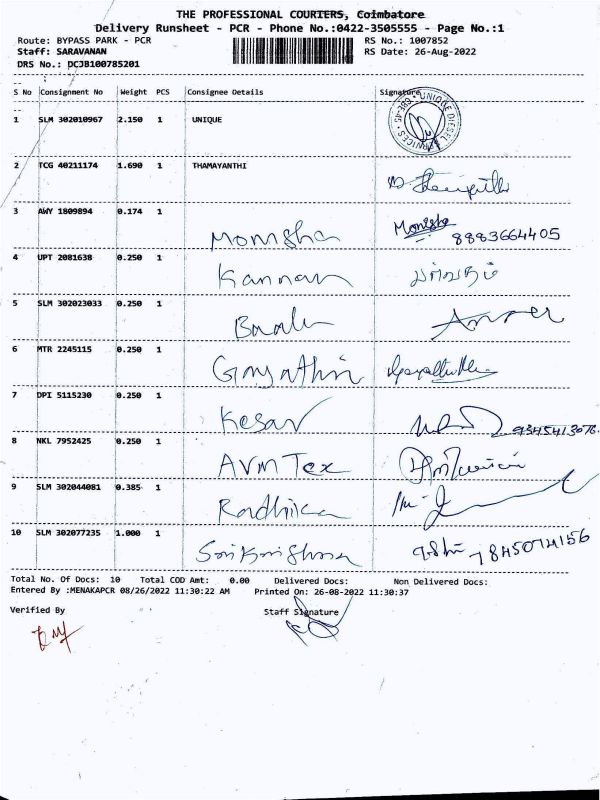 THE PROFESSIONAL COURTERS, Coimbatore
Delivery Runsheet - PCR - Phone No.:0422-3505555 - Page No.:1
Route: BYPASS PARK - PCR RS No.: 1007852
Staff: SARAVANAN RS Date: 26-Aug-2022
DRS No.: DCJB100785201
S No Consignment No Weight PCS Consignee Details Signature
1 SLM 302010967 2.150 1 UNIQUE
UNIQUE DIESEL SERVICES CBE-45
2 TCG 40211174 1.690 1 THAMAYANTHI
3 AWY 1809894 0.174 1 Monisha Monisha 8883664405
4 UPT 2081638 0.250 1 Kannan
5 SLM 302023033 0.250 1
6 MTR 2245115 0.250 1 Gayathiri
7 DPI 5115230 0.250 1 Kesav
8 NKL 7952425 0.250 1 AVM Tex
9 SLM 302044081 0.385 1 Radhika
10 SLM 302077235 1.000 1 Sri Krishna 7845074156
Total No. Of Docs: 10 Total COD Amt: 0.00 Delivered Docs: Non Delivered Docs:
Entered By :MENAKAPCR 08/26/2022 11:30:22 AM Printed On: 26-08-2022 11:30:37
Verified By Staff Signature